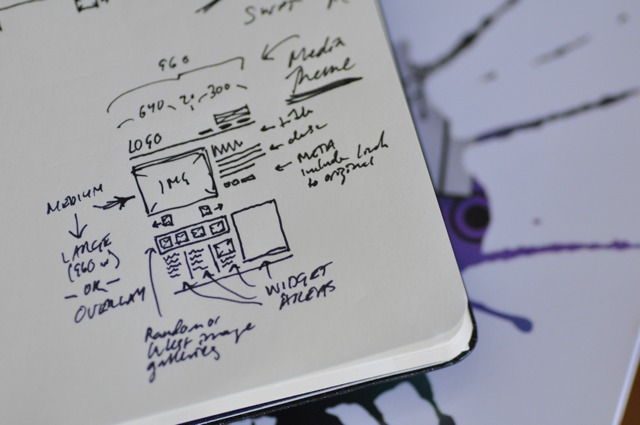 Swift
960
Media
Theme
640 20 300
LOGO
title
desc
META
include link
to original
IMG
MEDIUM
LARGE
(960 w)
- OR -
OVERLAY
WIDGET
AREAS
Random or
latest image
galleries